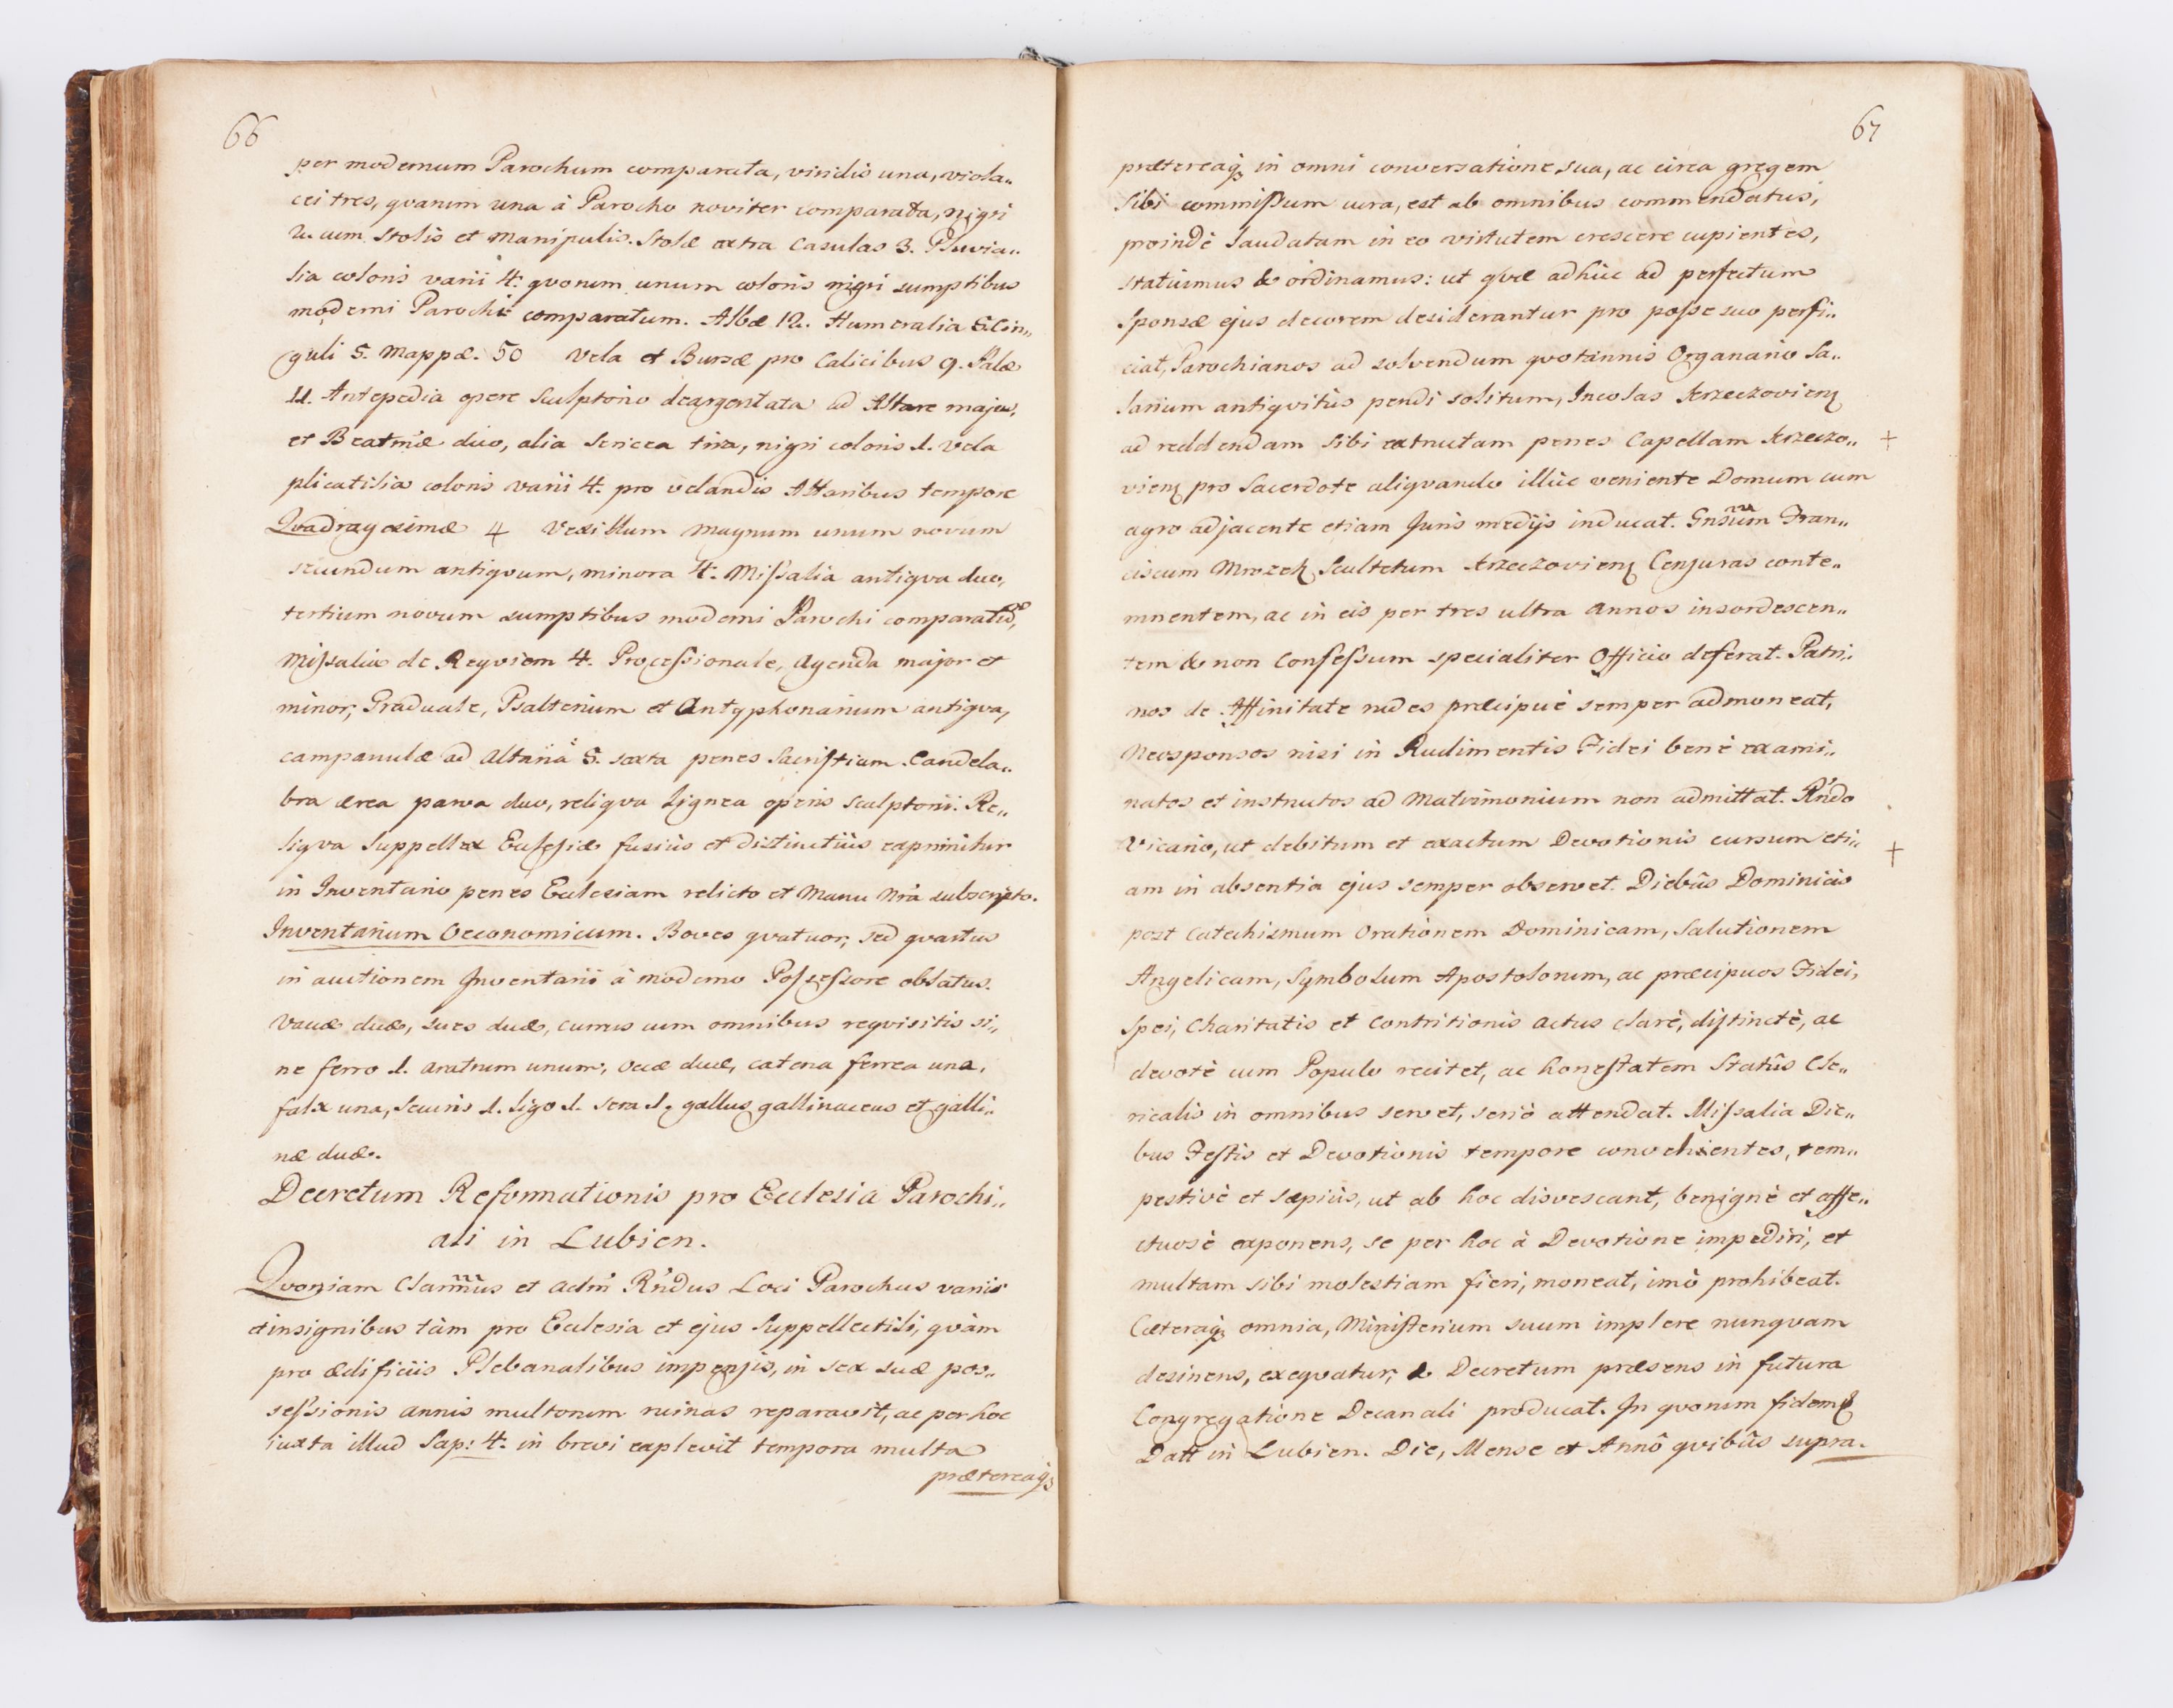 66
per modernum Parochum comparata, viridis una, viola„
cei tres, qvarum una à Parocho noviter comparata, nigri
2. cum Stolis et Manipulis. Stolæ extra Casulas 3. Pluvia„
lia coloris varii 4. qvorum unum coloris nigri sumptibus
moderni Parochi comparatum. Albæ 12. Humeralia 5. Cin„
guli 5. Mappæ. 50 Vela et Bursæ pro Calicibus 9. Palæ
11. Antepedia opere Sculptorio deargentata ad Altare majus,
et Beatmæ duo, alia Sericea tria, nigri coloris 1. Vela
plicatilia coloris varii 4. pro velandis Altaribus tempore
Qvadragesimæ 4 Vexillum magnum unum novum
secundum antiqvum, minora 4. Missalia antiqva duo,
tertium novum sumptibus moderni Parochi comparatũ,
Missalia de Reqviem 4. Processionale, Agenda major et
minor, Graduale, Psalterium et Antyphonarium antiqva,
campanulæ ad Altaria 5. sexta penes Sacristiam. Candela„
bra ærea parva duo, reliqva Lignea operis sculptorii. Re„
liqva Suppellex Ecclesiæ fusiùs et distinctiùs exprimitur
in Inventario penes Ecclesiam relicto et Manu Nrã subscripto.
Inventarium Oeconomicum. Boves qvatuor, sed qvartus
in auctionem Inventarii à moderno Possessore oblatus.
Vaccæ duæ, sues duæ, currus cum omnibus reqvisitis si„
ne ferro 1. aratrum unum, occæ duæ, catena ferrea una,
falx una, Securis 1. Ligo 1. sera 1. gallus gallinaceus et galli„
næ duæ.
Decretum Reformationis pro Ecclesia Parochi„
ali in Lubien.
Qvoniam Clarimũs et Adm̃ Rñdus Loci Parochus variis
et insignibus tàm pro Ecclesia et ejus Suppellectili, qvàm
pro ædificiis Plebanalibus impensis, in sex suæ pos„
sessionis annis multorum ruinas reparavit, ac per hoc
iuxta illud Sap: 4. in brevi explevit tempora multa
prætereaq3
67
prætereaq3 in omni conversatione sua, ac circa gregem
Sibi commissum cura, est ab omnibus commendatus,
proindè laudatam in eo virtutem crescere cupientes,
statuimus & ordinamus: ut qvæ adhùc ad perfectum
Sponsæ ejus decorem desiderantur pro posse suo perfi„
ciat, Parochianos ad solvendum qvotannis Organario Sa„
larium antiqvitùs pendi solitum, Incolas Krzeczovien
ad reddendam Sibi extructam penes Capellam Krzeczo„ +
vien pro Sacerdote aliqvando illùc veniente Domum cum
agro adjacente etiam Juris medijs inducat. Gnsum Fran„
ciscum Mrozek Scultetum Krzeczovien Censuras conte„
mnentem, ac in eis per tres ultra annos insordescen„
tem & non Confessum specialiter Officio deferat. Patri„
nos de Affinitate rudes præcipuè semper admoneat,
Neosponsos nisi in Rudimentis Fidei benè exami„
natos et instructos ad Matrimonium non admittat. Rñdo
Vicario, ut debitum et exactum Devotionis cursum eti„ +
am in absentia ejus semper observet. Diebûs Dominicis
post Catechismum Orationem Dominicam, Salutionem
Angelicam, Symbolum Apostolorum, ac præcipuos Fidei,
Spei, Charitatis et Contritionis actus clarè, distinctè, ac
devotè cum Populo recitet, ac honestatem Statûs Cle„
ricalis in omnibus servet, seriò attendat. Missalia Die„
bus Festis et Devotionis tempore convehentes, tem„
pestivè et sæpiùs, ut ab hoc disvescant, benignè et affe„
ctuosè exponens, se per hoc à Devotione impediri, et
multam sibi molestiam fieri, moneat, imò prohibeat.
Cæteraq3 omnia, Ministerium suum implere nunqvam
desinens, exeqvatur, & Decretum præsens in futura
Congregatione Decanali producat. In qvorum fidem
Datt in Lubien. Die, Mense et Annô qvibûs supra.